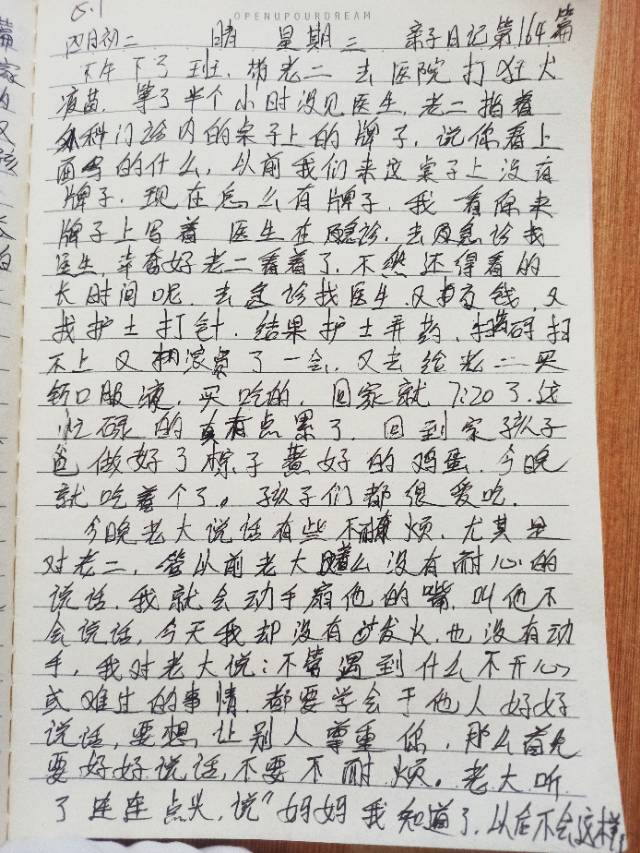 5.1
OPENUPOURDREAM
四月初二 晴 星期三 亲子日记第164篇
下午下了班,带老二去医院打狂犬
疫苗,等了半个小时没见医生,老二指着
外科门诊内的桌子上的牌子,说你看上
面写的什么,从前我们来这桌子上没有
牌子,现在怎么有牌子,我一看原来
牌子上写着医生在急诊,去急诊找
医生,幸好老二看着了,不然还得看的
长时间呢,去急诊找医生,又交钱,又
找护士打针,结果护士弄药,扫码扫
不上又了一会,又去给老二买
钙口服液,买吃的,回家就7:20了,这
忙碌的真有点累了,回到家孩子
爸做好了粽子煮好的鸡蛋,今晚
就吃着个了。孩子们都很爱吃,
今晚老大说话有些不耐烦,尤其是
对老二,从前老大这么没有耐心的
说话,我就会动手扇他的嘴,叫他不
会说话,今天我却没有发火,也没有动
手,我对老大说:不管遇到什么不开心
或难过的事情,都要学会于他人好好
说话,要想让别人尊重你,那么首先
要好好说话,不要不耐烦。老大听
了连连点头,说"妈妈我知道了,以后不会这样